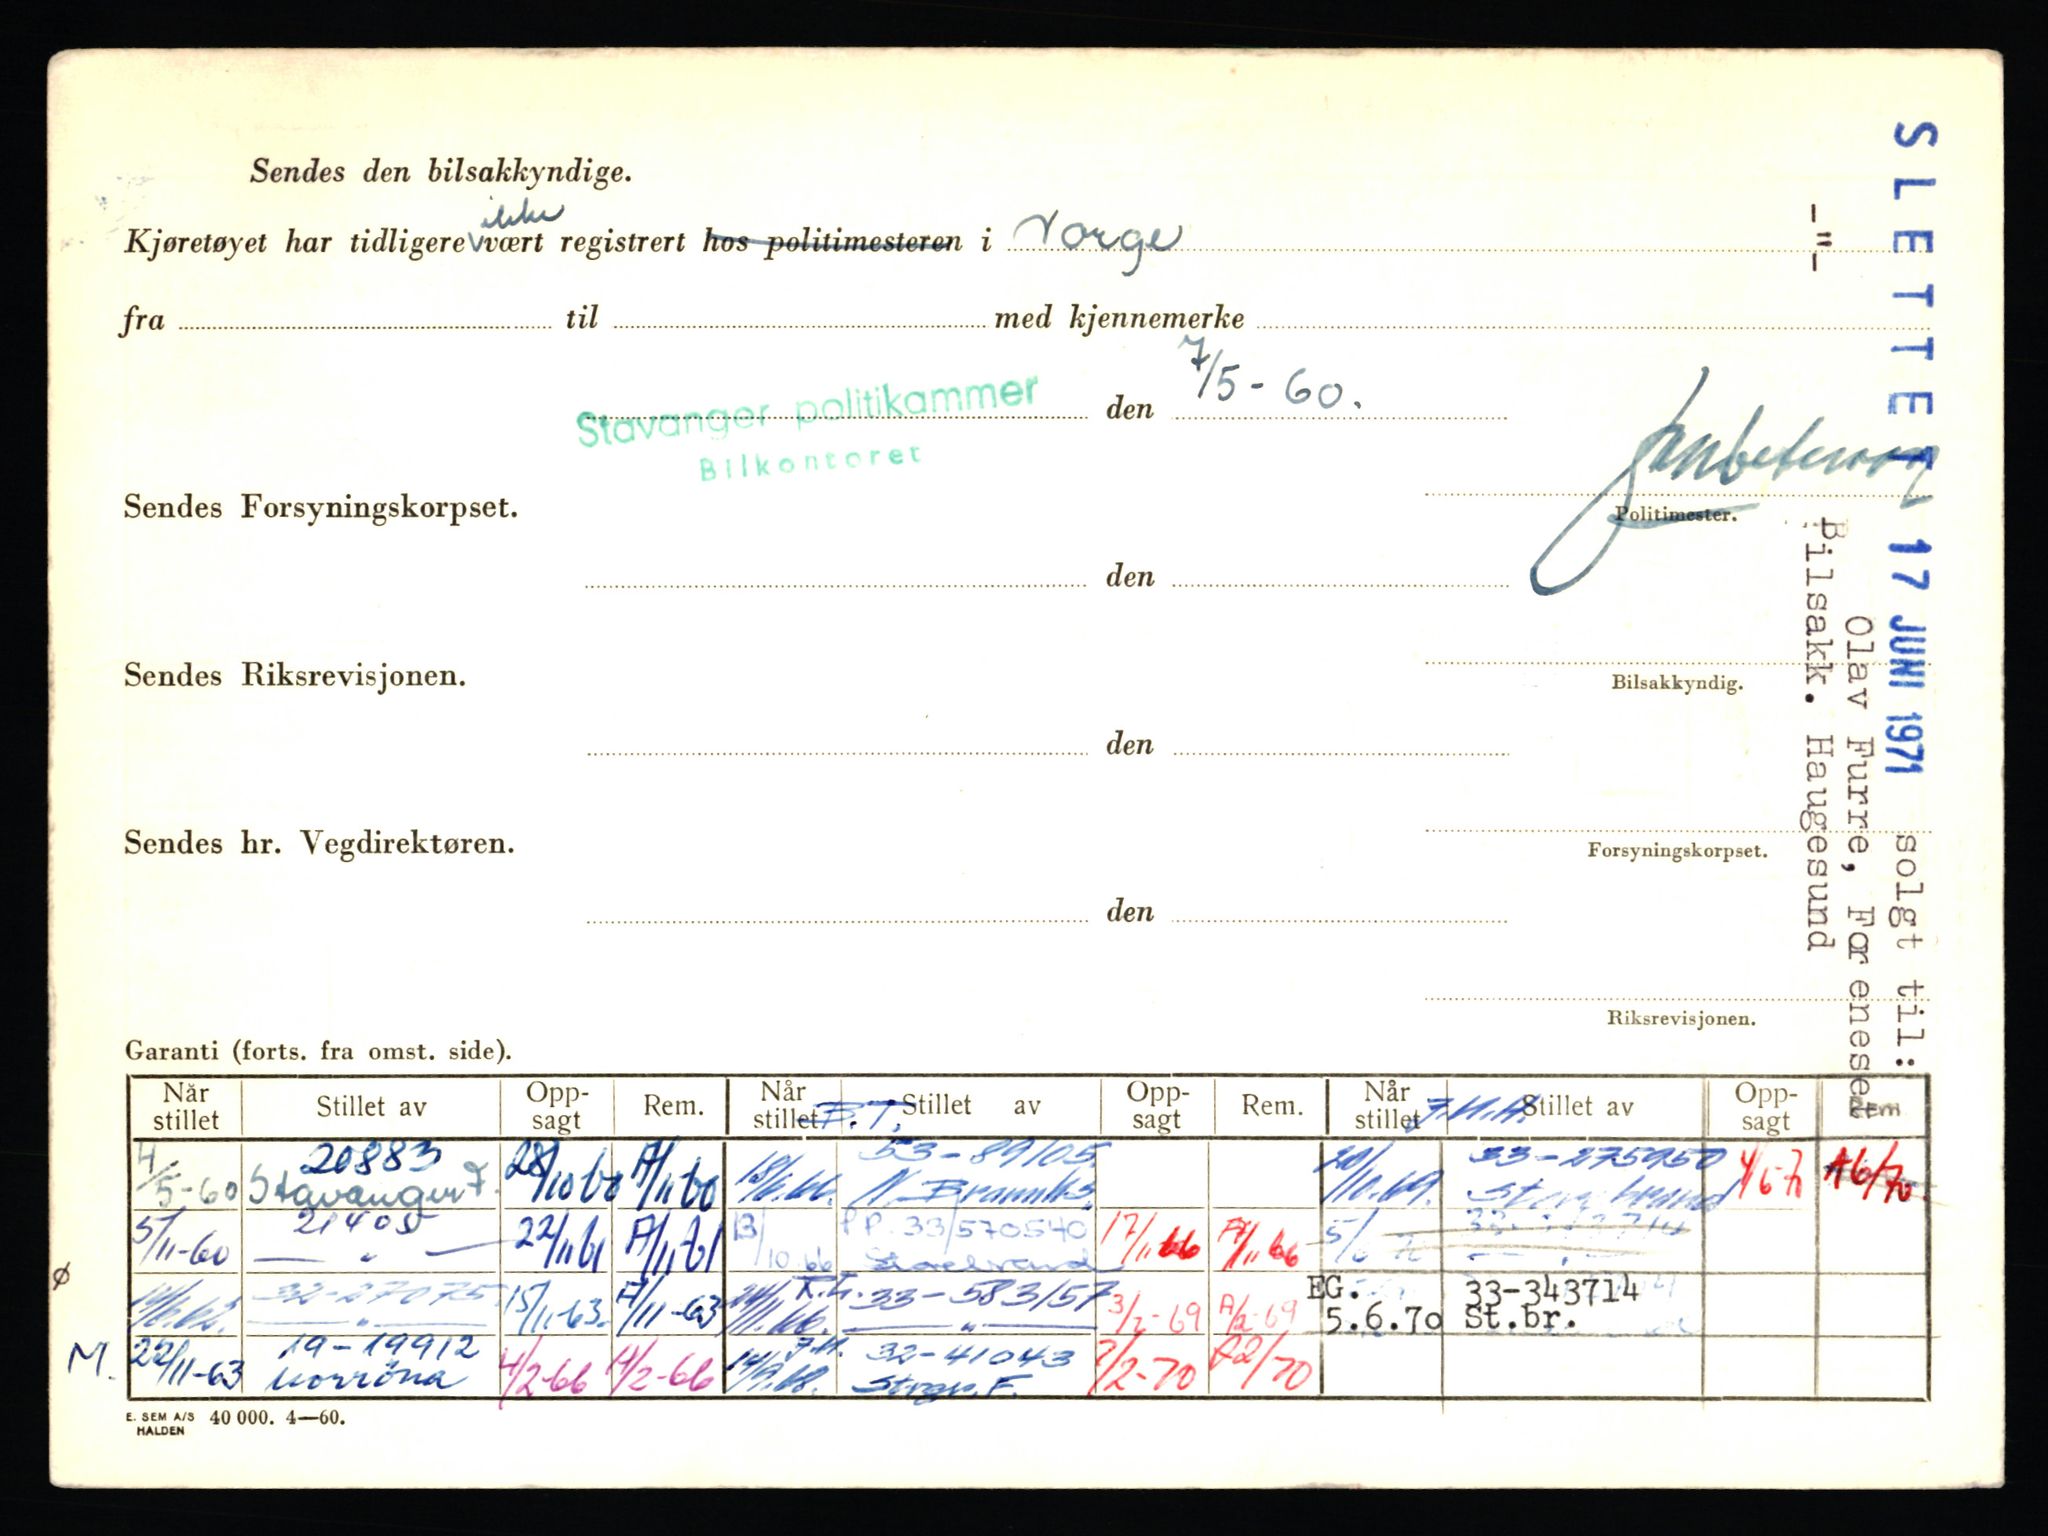 Sendes den bilsakkyndige.
Kjøretøyet har tidligere ikke vært registrert hos politimesteren i Norge
fra til med kjennemerke
Stavanger politikammer
Bilkontoret
den 7/5-60.
Politimester.
Sendes Forsyningskorpset.
den
Bilsakkyndig.
Sendes Riksrevisjonen.
den
Forsyningskorpset.
Sendes hr. Vegdirektøren.
den
Riksrevisjonen.
SLETTET 17 JUNI 1971 solgt til:
Olav Furre, Føreneset
Bilsakk. Haugesund
-"-
Garanti (forts. fra omst. side).
Når stillet Stillet av Oppsagt Rem. Når stillet Stillet av Oppsagt Rem. Når stillet Stillet av Oppsagt Rem
4/5-60 20883 Stavanger F. 28/10 60 A/11 60
5/11-60 21405 — " — 22/11 61 A/11 61
32-27075 — " — 15/11-63. A/11-63
22/11-63 19-19912 Norröna 4/2-66 A/2-66
B.T. 53-89105
13/10.66 P.P. 33/570540 17/11 66 A/11 66
33-583157 — " — 3/2-69 A/2-69
32-41043 Strgr. F. 2/2-70 A2/70
33-275950 Storebrand 4/6-70 A6/70
EG. 5.6.70 33-343714 St.br.
ø
M.
E. SEM A/S HALDEN 40 000. 4—60.